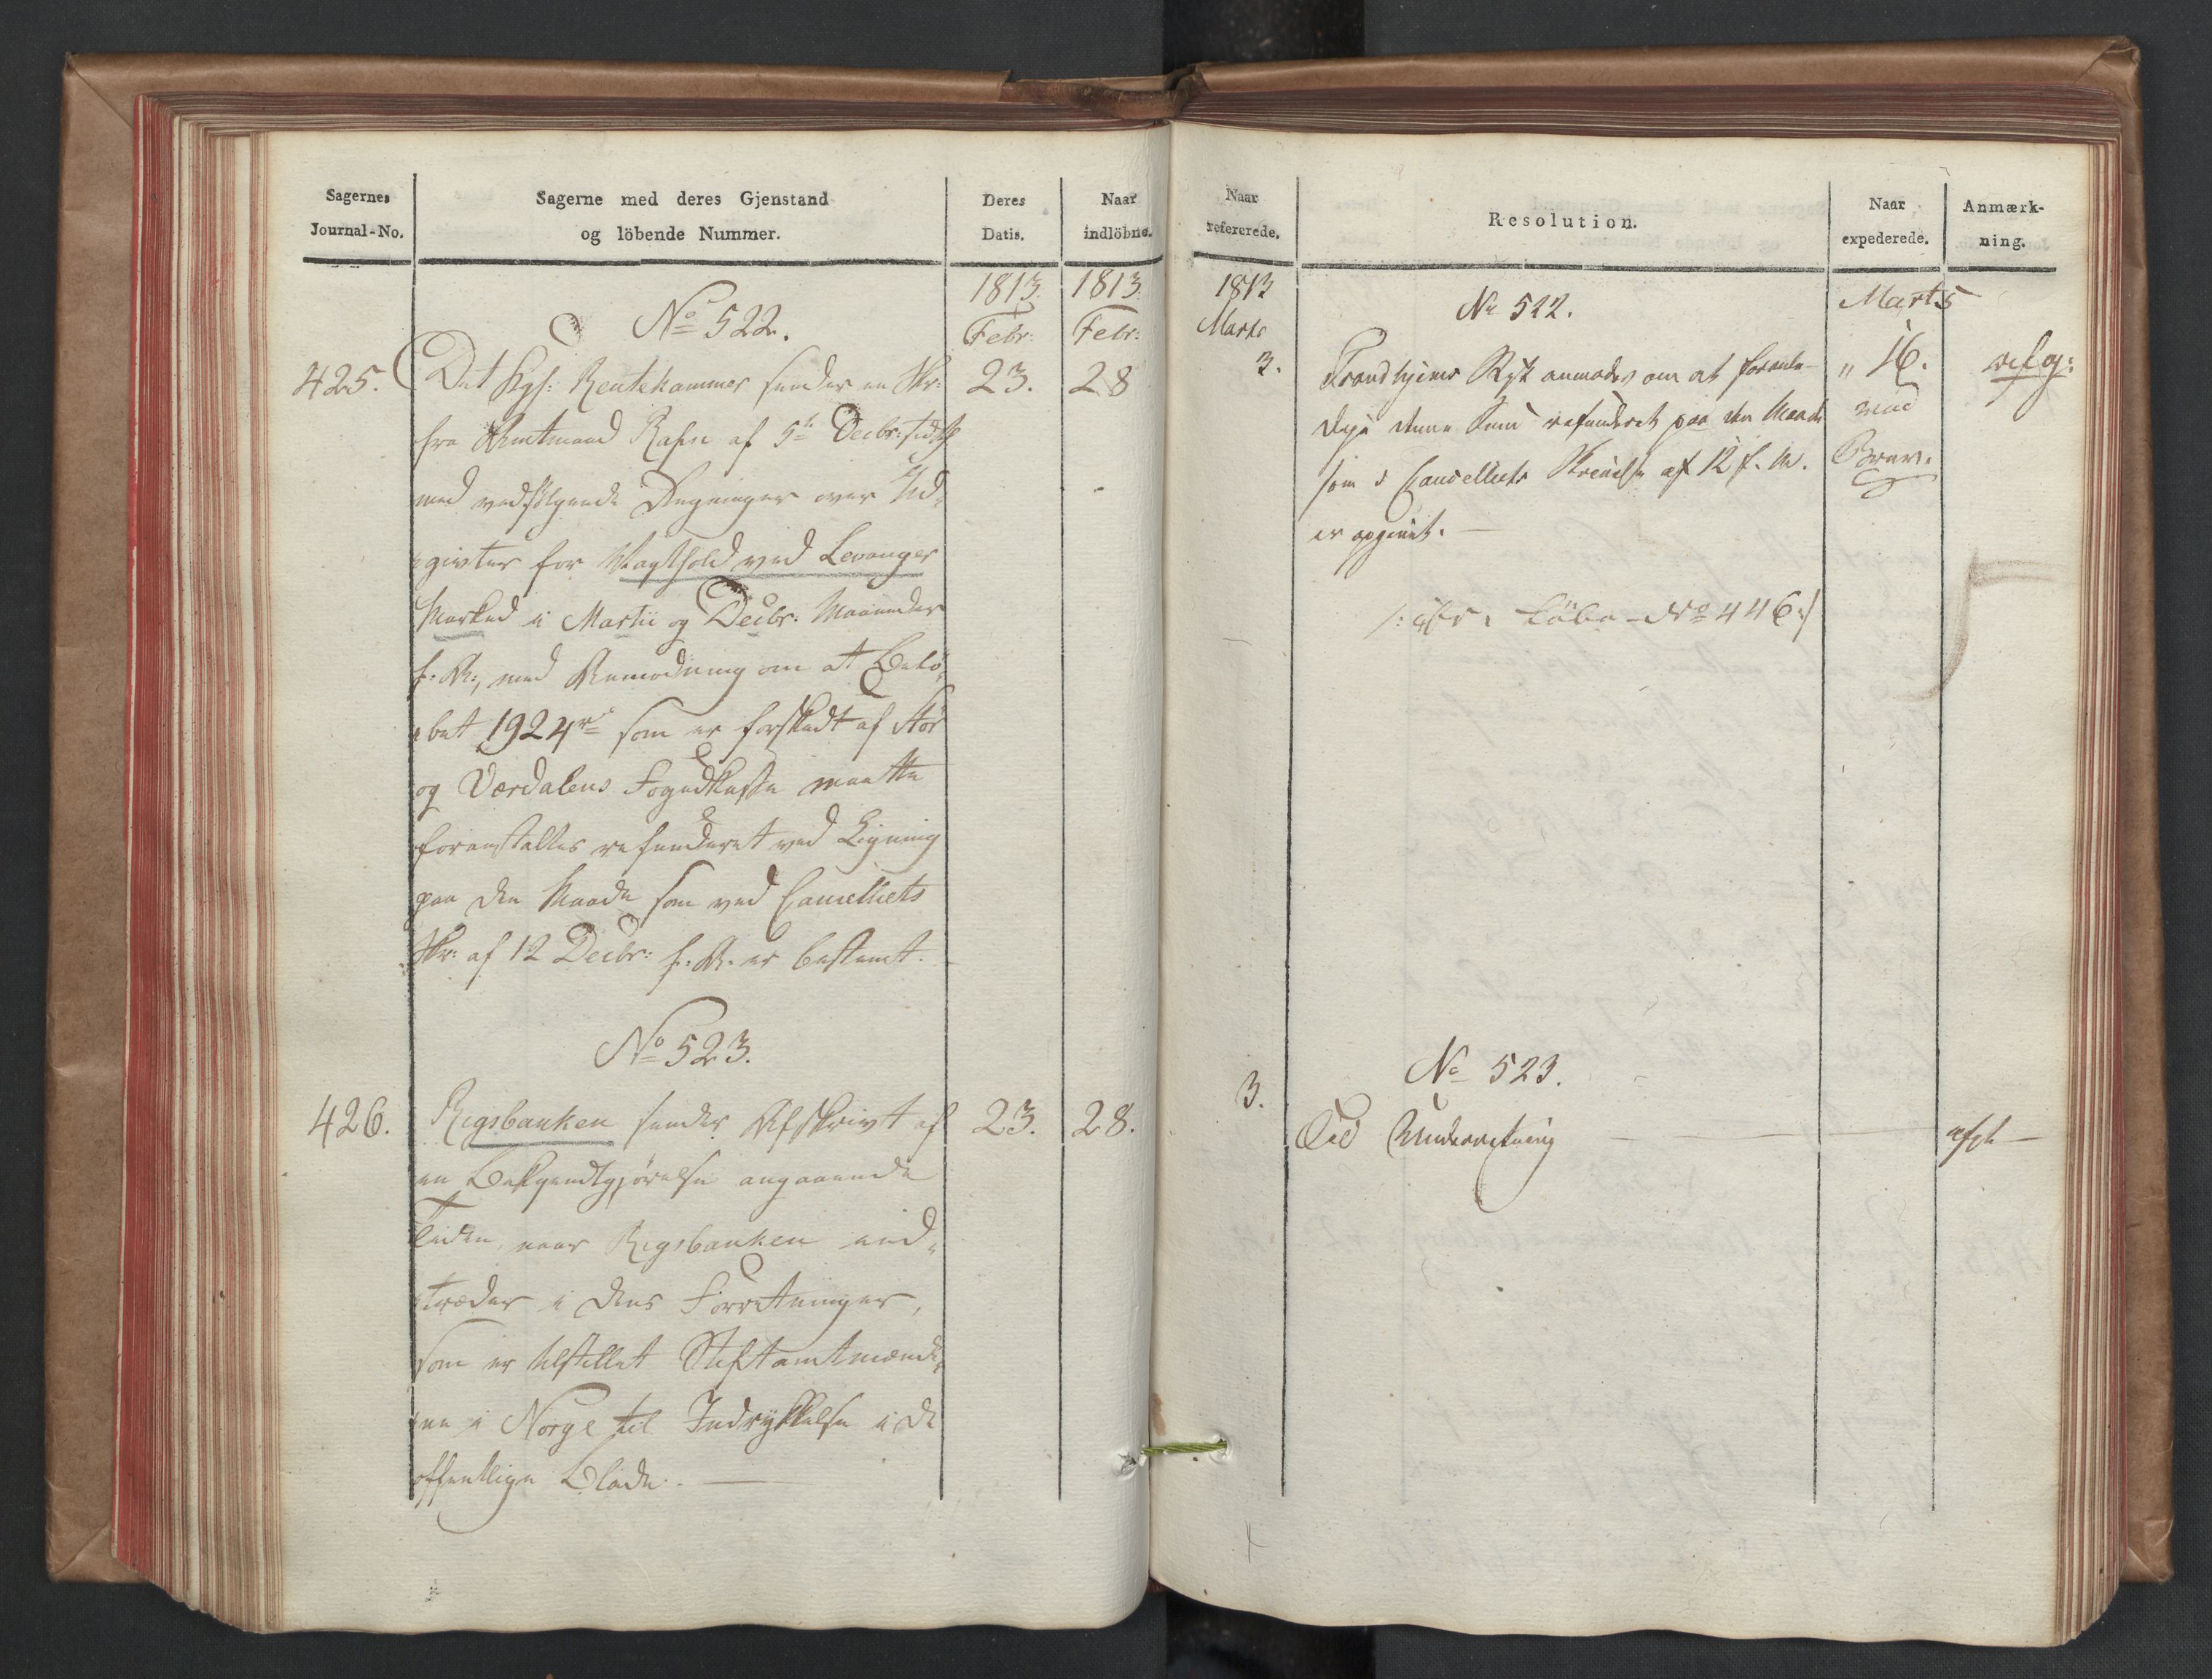 Sagernes
Journal-No.
Sagerne med deres Gjenstand
og löbende Nummer.
Deres
Datis.
Naar
indlöbne.
1813. 1813.
No 522. Febr: Febr:
425. Det Kgl: Rentekammer sender en Skr: 23. 28
fra Amtmand Rafn af 5te Decbr: sidstl
med vedfölgende Regninger over Ud-
givter for Vagthold ved Levanger
Marked i Martii og Decbr: Maaneder
f: A:, med Anmodning om at Belö-
bet 1924 rd som er forskudt af Stör
og Værdalens Fogedkasse maatte
foranstaltes refunderet ved Ligning
paa den Maade som ved Cancelliets
Skr: af 12 Decbr: f: A. er bestemt.
No 523.
426. Rigsbanken sender Afskrivt af 23. 28.
en Bekjendtgjörelse angaaende
Tiden, naar Rigsbanken ind-
træder i dens Forretninger,
som er tilstillet Stiftamtmænde-
ne i Norge til Indrykkelse i de
offentlige Blade.
Naar
refererede.
Resolution.
Naar
expederede.
Anmærk-
ning.
1813
Marts
No 522. Marts
3. Trondhjems Stift anmodes om at foranle-
" 16.
dige denne Sum refunderet paa den Maade
som i Cancelliets Skrivelse af 12 f. M.
er opgivet.
/: Löbe-No 446 :/
No 523.
3. Til Underretning